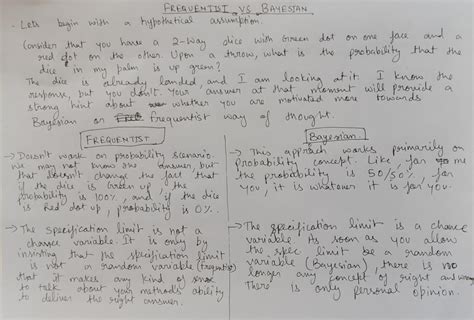 FREQUENTIST VS BAYESIAN
· Lets begin with a hypothetical assumption.
Consider that you have a 2-Way dice with Green dot on one face and a
red dot on the other. Upon a throw, what is the probability that the
dice in my palm is up green?
The dice is already landed, and I am looking at it I know the
response, but you don't. Your answer at that moment will provide a
strong hint about whether you are motivated more towards
Bayesian or frequentist way of thought.
FREQUENTIST
→ Doesn't work on probability scenario.
We may not know the answer, but that
that doesn't change the fact that
if the dice is Green up the
probability is 100%, and if the dice
is Red dot up, probability is 0%.
→ The specification limit is not a
chance variable. It is only by
insisting that the specification limit
is not a random variable (frequentist)
that it makes any kind of sense
to talk about your method's ability
to deliver the right answer.
Bayesian
→ This approach works primarily on
probability concept. Like for me
the probability is 50/50%, for
you, it is whatever it is for you.
→ The specification limit is a chance
variable. As soon as you allow
the spec limit be a random
variable (Bayesian), there is no
longer any concept of right answer.
There is only personal opinion.